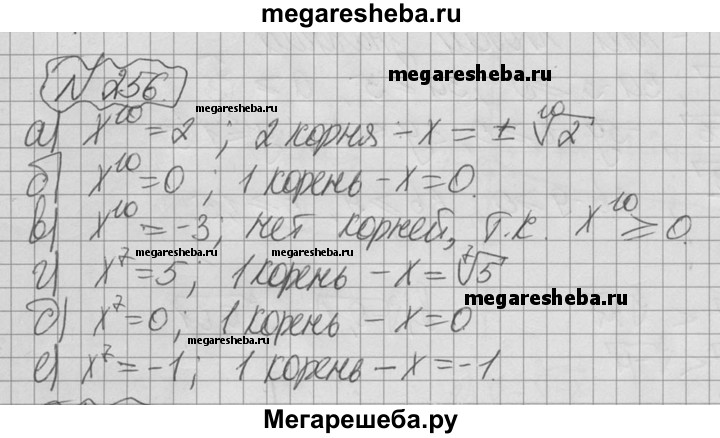 megaresheba.ru
N 256.
megaresheba.ru
megaresheba.ru
а) x^10 = 2 ; 2 корня – x = ± ¹⁰√2
б) x^10 = 0 ; 1 корень – x = 0.
megaresheba.ru
в) x^10 = -3; нет корней, т.к. x^10 ≥ 0.
megaresheba.ru
megaresheba.ru
г) x^7 = 5; 1 корень – x = ⁷√5
megaresheba.ru
д) x^7 = 0; 1 корень – x = 0
megaresheba.ru
е) x^7 = -1; 1 корень – x = -1.
Мегарешеба.ру